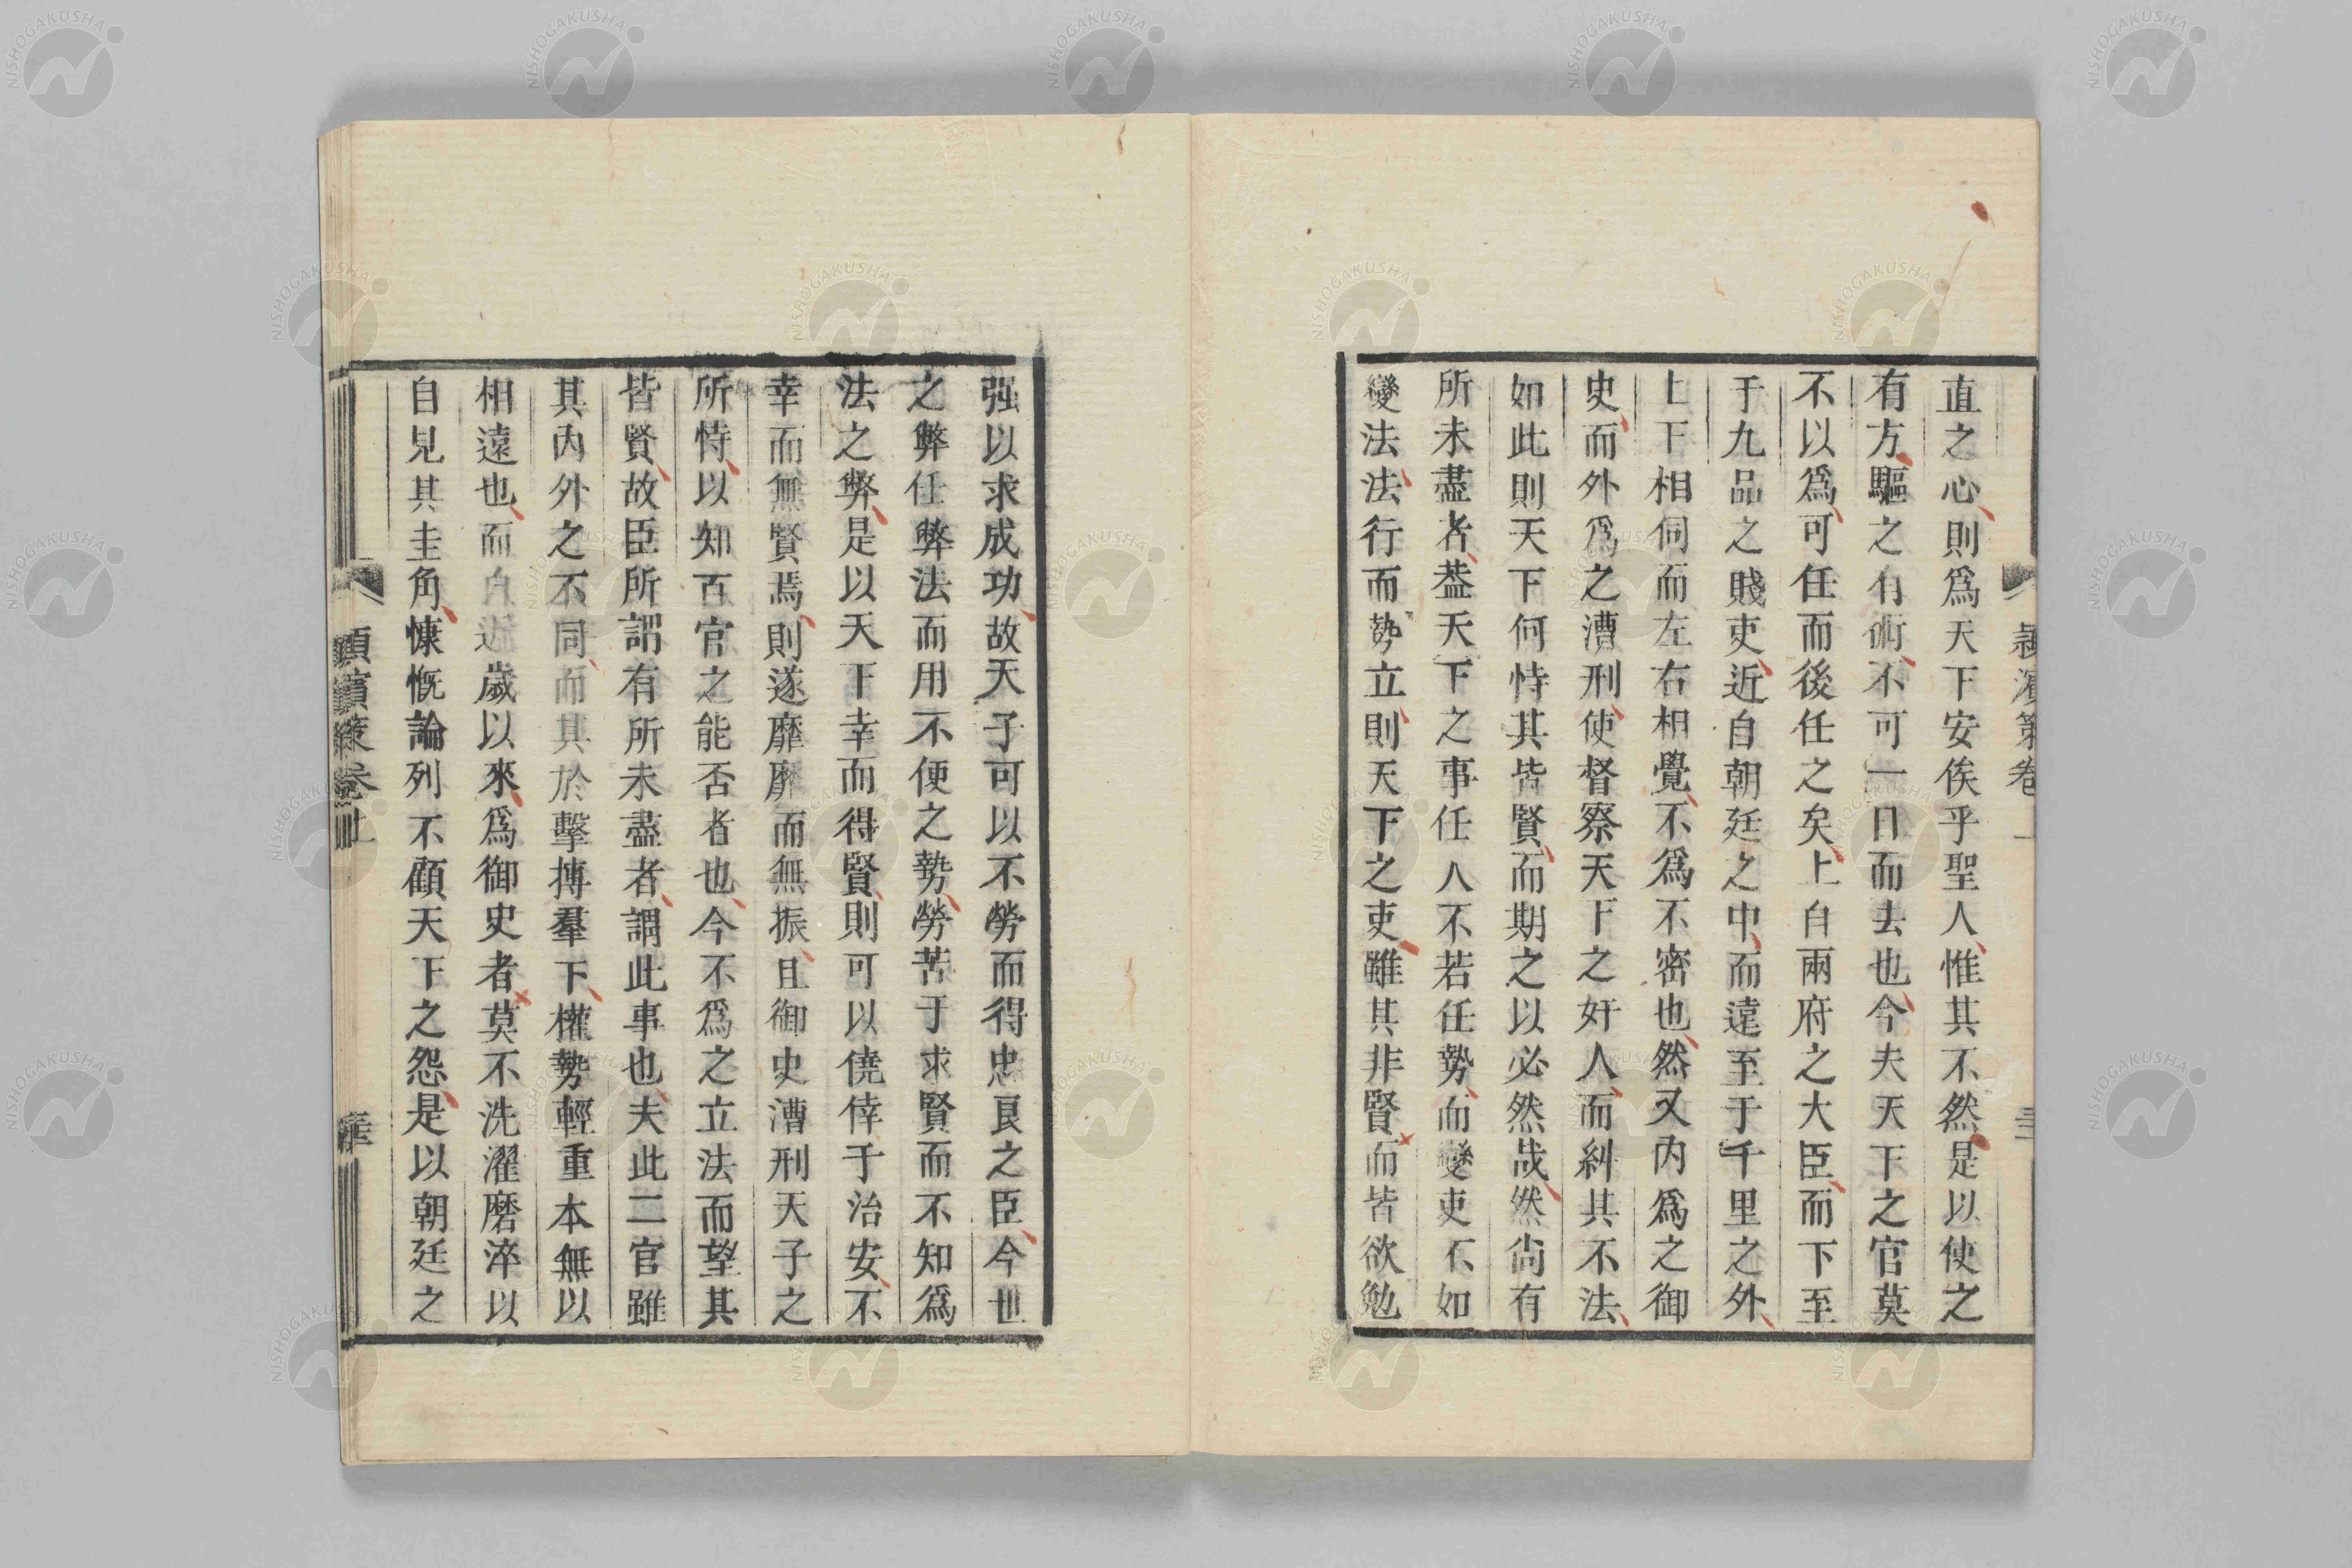 直之心則爲天下安俟乎聖人惟其不然是以使之
有方驅之有術不可一日而去也今夫天下之官莫
不以爲可任而後任之矣上自兩府之大臣而下至
于九品之賤吏近自朝廷之中而遠至于千里之外
上下相伺而左右相覺不爲不密也然又內爲之御
史而外爲之漕刑使督察天下之奸人而糾其不法
如此則天下何恃其皆賢而期之以必然哉然尚有
所未盡者葢天下之事任人不若任勢而變吏不如
變法法行而勢立則天下之吏雖其非賢而皆欲勉
强以求成功故天子可以不勞而得忠良之臣今世
之弊任弊法而用不便之勢勞苦于求賢而不知爲
法之弊是以天下幸而得賢則可以僥倖于治安不
幸而無賢焉則遂靡靡而無振且御史漕刑天子之
所恃以知百官之能否者也今不爲之立法而望其
皆賢故臣所謂有所未盡者謂此事也夫此二官雖
其內外之不同而其於擊搏羣下權勢輕重本無以
相遠也而自近歲以來爲御史者莫不洗濯磨淬以
自見其圭角慷慨論列不顧天下之怨是以朝廷之
潁濱策卷上
NISHOGAKUSHA